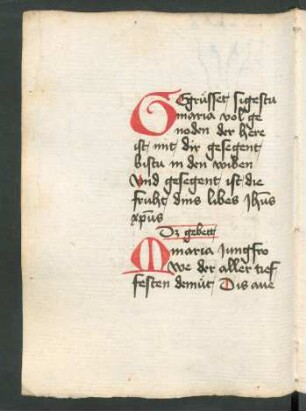 GEgrüsset sigestu
maria vol ge
noden der here
ist mit dir gesegent
bistu in den wiben
Und gesegent ist die
fruht dins libes Jhus
xpus
Dz gebett
O maria Jungfro
we der aller tief
festen demüt Dis aue